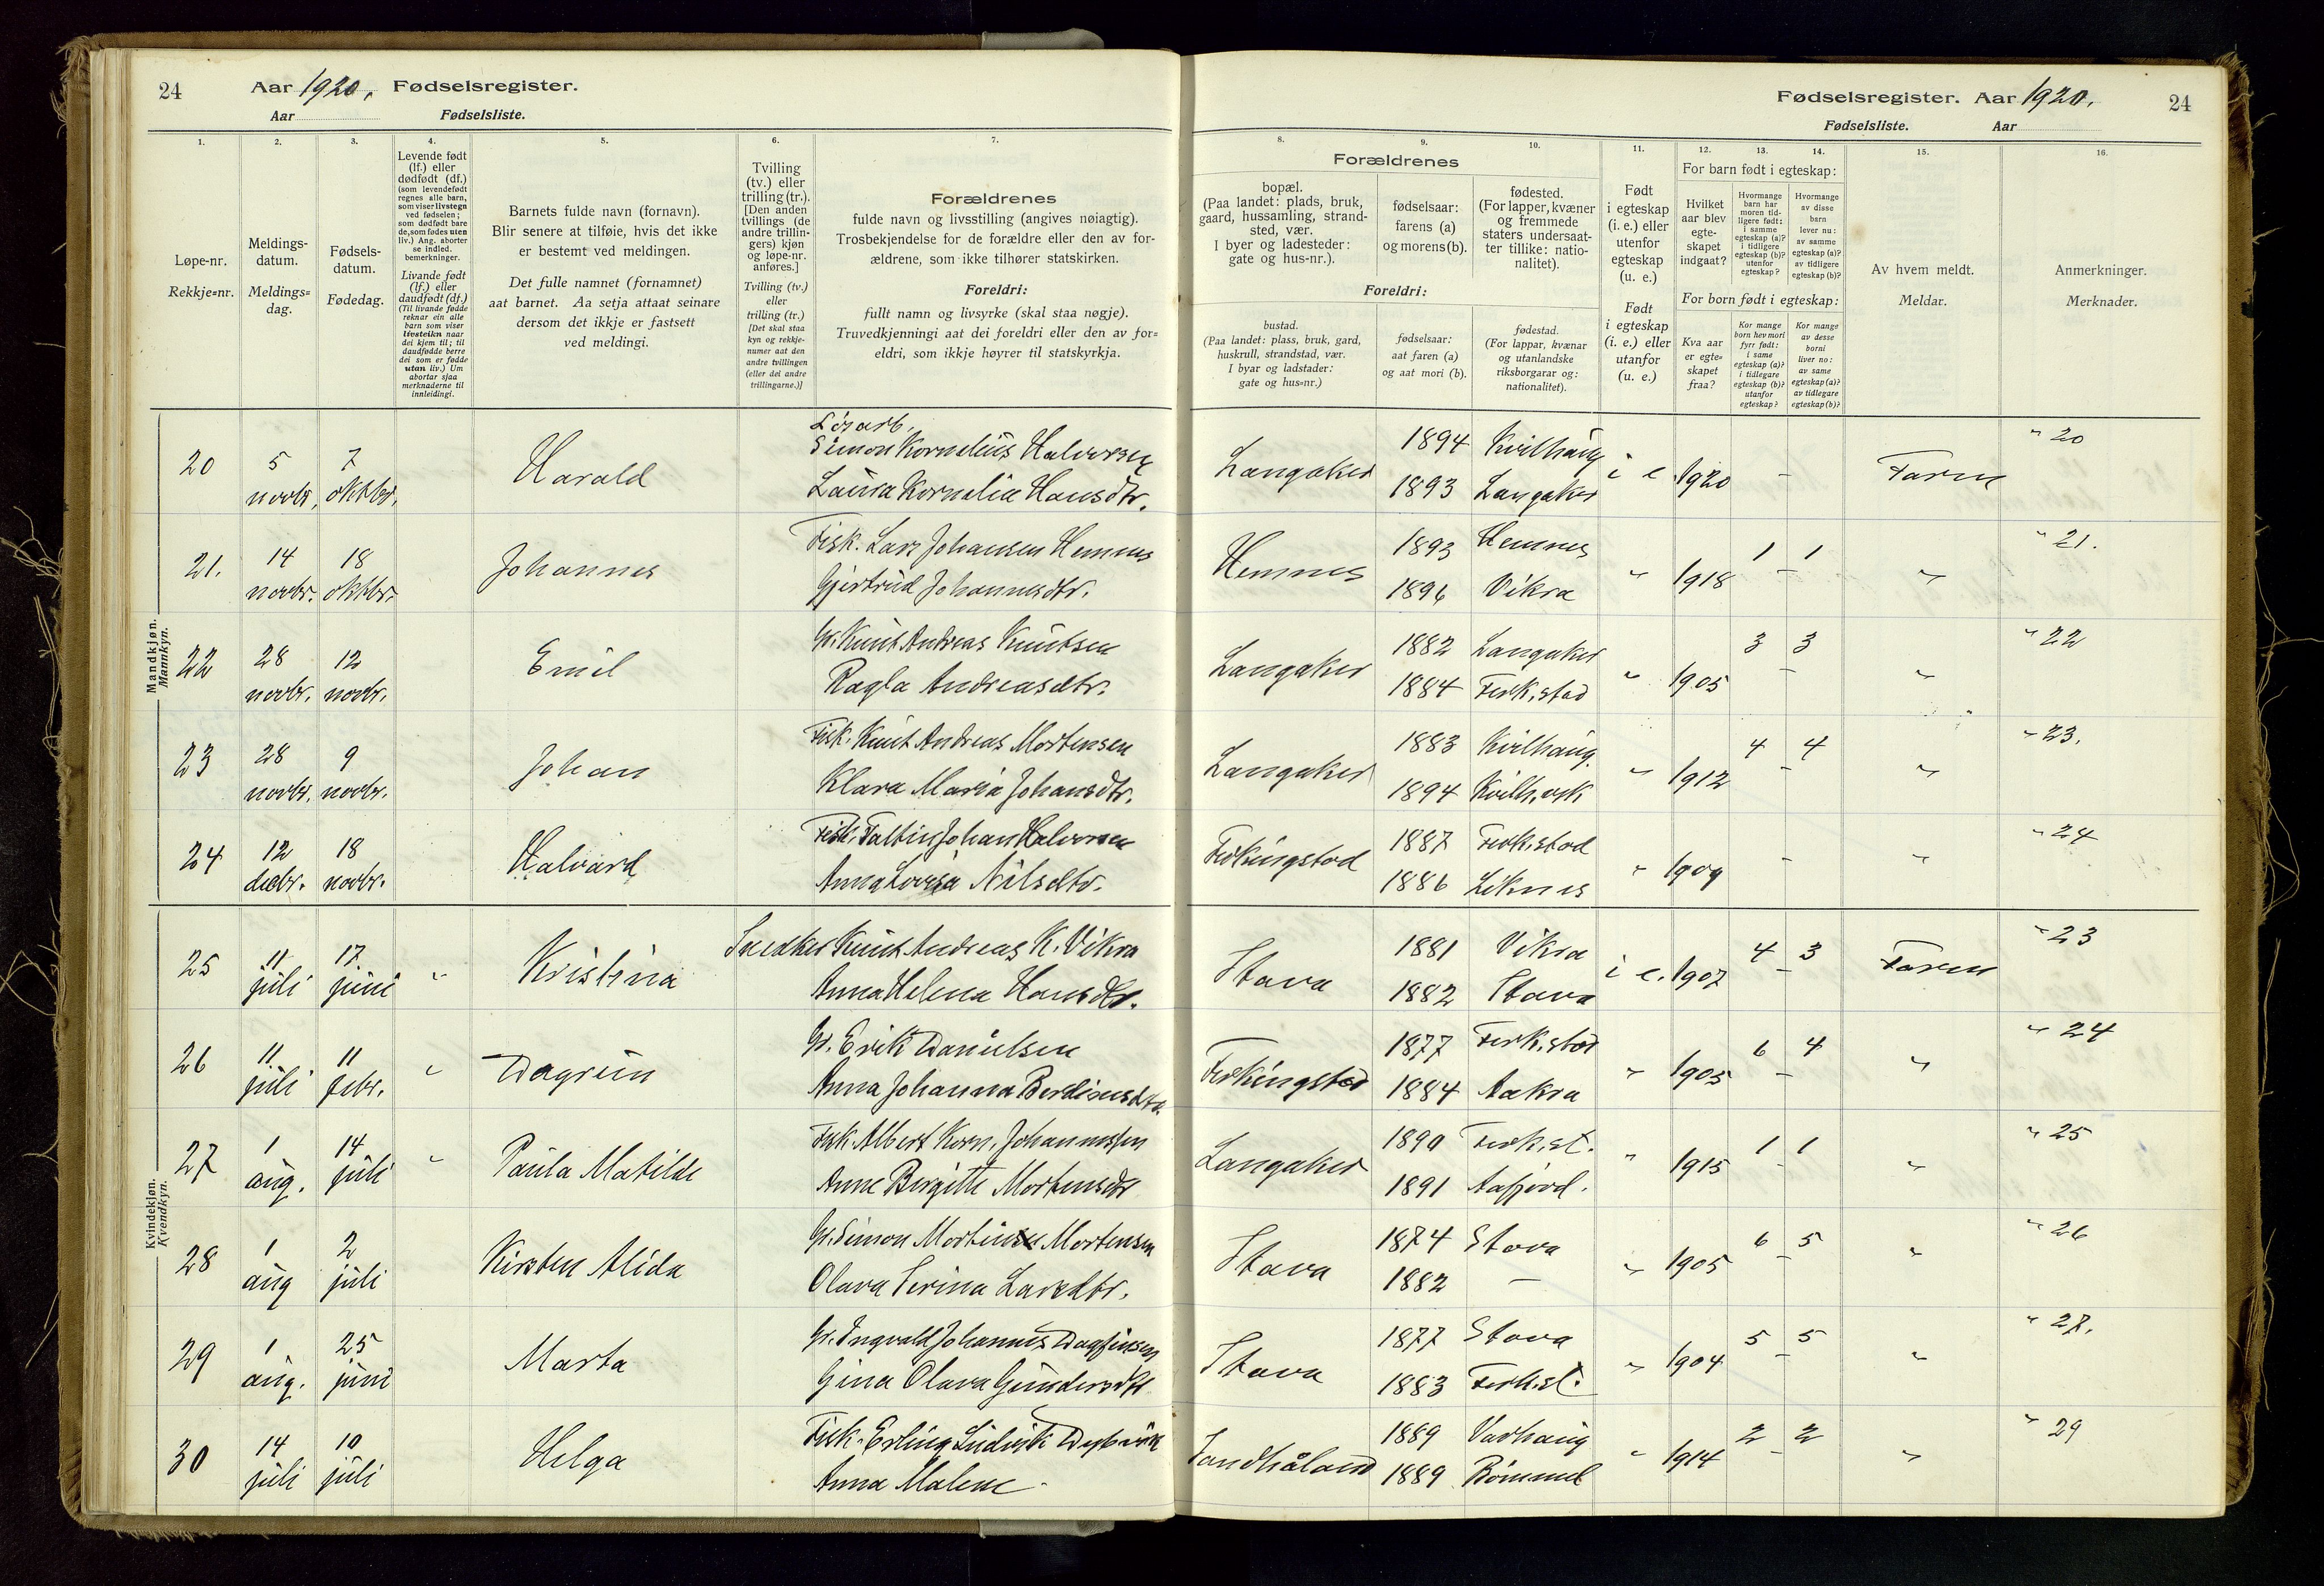 24 Aar 1920. Fødselsregister.
Aar Fødselsliste.
Fødselsregister. Aar 1920. 24
Fødselsliste. Aar
1. 2. 3. 4. 5. 6. 7.
Løpe-nr.
Rekkje=nr.
Meldings-
datum.
Meldings=
dag.
Fødsels-
datum.
Fødedag.
Levende født
(lf.) eller
dødfødt (df.)
(som levendefødt
regnes alle barn,
som viser livstegn
ved fødselen;
som dødfødt bare
de, som fødes uten
liv.) Ang. aborter
se indled.
bemerkninger.
Livande født
(lf.) eller
daudfødt (df.)
(Til livande fødde
reknar ein alle
barn som viser
livsteikn naar
dei kjem til; til
daudfødde berre
dei som er fødde
utan liv.) Um
abortar sjaa
merknaderne til
innleidingi.
Barnets fulde navn (fornavn).
Blir senere at tilføie, hvis det ikke
er bestemt ved meldingen.
Det fulle namnet (fornamnet)
aat barnet. Aa setja attaat seinare
dersom det ikkje er fastsett
ved meldingi.
Tvilling
(tv.) eller
trilling (tr.).
[Den anden
tvillings (de
andre trillin-
gers) kjøn
og løpe-nr.
anføres.]
Tvilling (tv.)
eller
trilling (tr.)
[Det skal staa
kyn og rekkje-
numer aat den
andre tvillingen
(eller dei andre
trillingarne.)]
Forældrenes
fulde navn og livsstilling (angives nøiagtig).
Trosbekjendelse for de forældre eller den av for-
ældrene, som ikke tilhører statskirken.
Foreldri:
fullt namn og livsyrke (skal staa nøgje).
Truvedkjenningi aat dei foreldri eller den av for=
eldri, som ikkje høyrer til statskyrkja.
8. 9. 10. 11. 12. 13. 14. 15. 16.
Forældrenes
bopæl.
(Paa landet: plads, bruk,
gaard, hussamling, strand-
sted, vær.
I byer og ladesteder:
gate og hus-nr.).
fødselsaar:
farens (a)
og morens (b).
fødested.
(For lapper, kvæner
og fremmede
staters undersaat-
ter tillike: natio-
nalitet).
Foreldri:
bustad.
(Paa landet: plass, bruk, gard,
huskrull, strandstad, vær.
I byar og ladstader:
gate og hus=nr.)
fødselsaar:
aat faren (a)
og aat mori (b).
fødestad.
(For lappar, kvænar
og utanlandske
riksborgarar og:
nationalitet).
Født
i egteskap
(i. e.) eller
utenfor
egteskap
(u. e.)
Født
i egteskap
(i. e.) eller
utanfor
(u. e.)
For barn født i egteskap:
Hvilket
aar blev
egte-
skapet
indgaat?
Hvormange
barn har
moren tid-
ligere født:
i samme
egteskap (a)?
i tidligere
egteskap (b)?
utenfor
egteskap?
Hvormange
av disse
barn
lever nu:
av samme
egteskap (a)?
av tidligere
egteskap (b)?
For born født i egteskap:
Kva aar
er egte=
skapet
fraa?
Kor mange
born hev mori
fyrr født:
i same
egteskap (a)?
i tidlegare
egteskap (b)?
utanfor
egteskap?
Kor mange
av desse
borni
liver no:
av same
egteskap (a)?
av tidlegare
egteskap (b)?
Av hvem meldt.
Meldar.
Anmerkninger.
Merknader.
Mandkjøn.
Mannkyn.
Løsarb.
20 5 7 Harald Simon Kornelius Halvorsen Langaker 1894 Kvilhaug i e 1920 - Faren " 20
novbr. oktbr. Laura Kornelia Hansdtr. 1893 Langaker
21. 14 18 Johannes Fisk. Lars Johansen Hemnes Hemnes 1893 Hemnes " 1918 1 - 1 " " 21.
novbr. oktbr. Gjertrud Johannesdtr. 1896 Vikra
22 28 12 Emil Gr. Knut Andreas Knutsen Langaker 1882 Langaker " 1905 3 - 3 " " 22
novbr. novbr. Ragla Andreasdtr. 1884 Ferk.stad
23 28 9 Johan Fisk. Knut Andreas Mortensen Langaker 1883 Kvilhaug. " 1912 4 - 4 " " 23.
novbr. novbr. Klara Maria Johansdtr. 1894 Kvilh.vik
24 12 18 Halvard Fisk. Faltin Johan Halvorsen Ferkingstad 1887 Ferk.stad " 1909 - " " 24
decbr. novbr. Anna Lovisa Nilsdtr. 1886 Liknes
Kvindekjøn.
Kvendkyn.
25 11 17 " Kristina Snedker Knut Andreas K. Vikra Stava 1881 Vikra i e. 1907 4 - 3 Faren " 23
juli juni Anna Helena Hansdtr. 1882 Stava
26 11 11 " Dagrun Gr. Erik Danielsen Ferkingstad 1877 Ferk.stad " 1905 6 - 4 " " 24
juli febr. Anna Johanna Berdinesdtr. 1884 Aakra
27 1 14 " Paula Matilde Fisk. Albert Korn. Johannessen Langaker 1890 Ferk.st. " 1915 1 - 1 " " 25
aug. juli Anne Birgitte Mortensdtr 1891 Aafjord.
28 1 2 Kirsten Alida Gr. Simon Mortinsen Mortensen Stava 1874 Stava " 1905 6 - 5 " " 26
aug juli Olava Serina Larsdtr. 1882 —
29 1 25 Marta Gr. Ingvald Johannes Dagfinsen Stava 1877 Stava " 1904 5 - 5 " " 27.
aug. juni Gina Olava Gundersdtr 1883 Ferk.st.
30 14 10 Helga Fisk. Erling Ludvik Dybvik Sandhåland 1889 Varhaug " 1914 2 - 2 " " 29
juli juli Anna Malene 1889 Bømmel